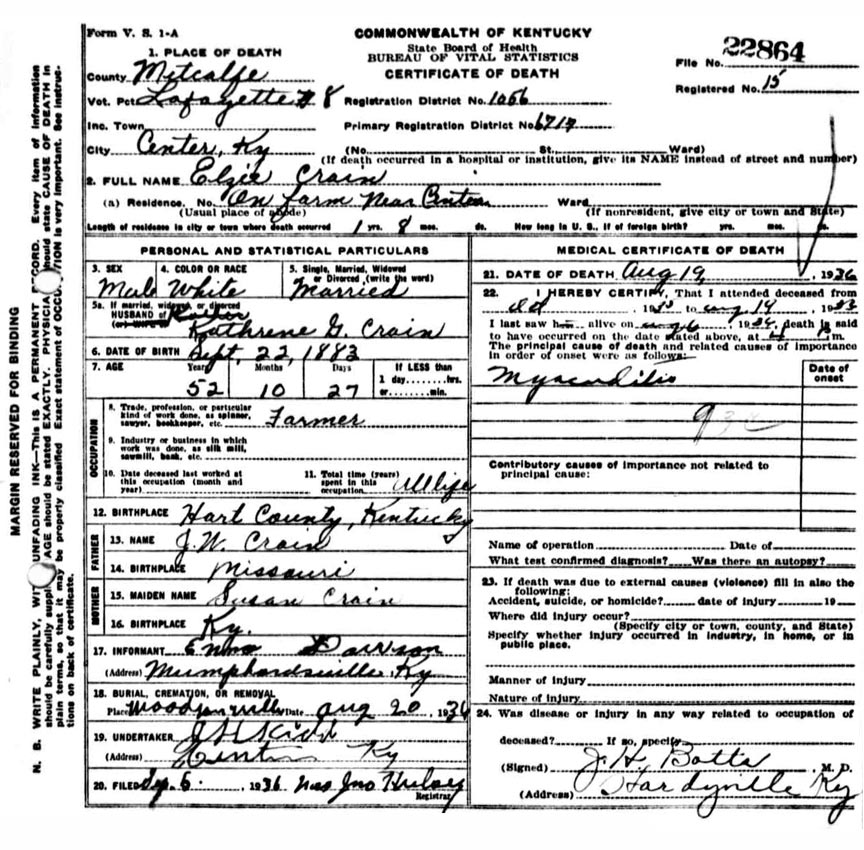 Form V. S. 1-A
COMMONWEALTH OF KENTUCKY
State Board of Health
BUREAU OF VITAL STATISTICS
CERTIFICATE OF DEATH
File No. 22864
Registered No. 15
1. PLACE OF DEATH
County Metcalfe
Vot. Pct. Lafayette # 8 Registration District No. 1056
Inc. Town Primary Registration District No. 6717
City Center, Ky (No. St. Ward)
(If death occurred in a hospital or institution, give its NAME instead of street and number)
2. FULL NAME Elzie Crain
(a) Residence. No. On farm Near Center Ward
(Usual place of abode) (If nonresident, give city or town and State)
Length of residence in city or town where death occurred 1 yrs. 8 mos. ds. How long in U. S., if of foreign birth? yrs. mos. ds.
PERSONAL AND STATISTICAL PARTICULARS
3. SEX 4. COLOR OR RACE 5. Single, Married, Widowed or Divorced (write the word)
Male White Married
5a. If married, widowed, or divorced
HUSBAND of
(or) WIFE of Kathrene G. Crain
6. DATE OF BIRTH Sept, 22, 1883
7. AGE Years Months Days If LESS than
1 day,........hrs.
52 10 27 or........min.
OCCUPATION
8. Trade, profession, or particular kind of work done, as spinner, sawyer, bookkeeper, etc. Farmer
9. Industry or business in which work was done, as silk mill, sawmill, bank, etc.
10. Date deceased last worked at this occupation (month and year)
11. Total time (years) spent in this occupation All life
12. BIRTHPLACE Hart County, Kentucky
FATHER
13. NAME J. W. Crain
14. BIRTHPLACE Missouri
MOTHER
15. MAIDEN NAME Susan Crain
16. BIRTHPLACE Ky.
17. INFORMANT Dawson
(Address) Mumphordsville Ky
18. BURIAL, CREMATION, OR REMOVAL
Place Date Aug 20, 1936
19. UNDERTAKER J H Kidd
(Address) Center Ky
20. FILED Sep. 6. 1936 Mrs Jno Hulsey
Registrar
MEDICAL CERTIFICATE OF DEATH
21. DATE OF DEATH Aug 19, 1936
22. I HEREBY CERTIFY, That I attended deceased from
19 to Aug 19, 19
I last saw h alive on Aug 6 19 , death is said
to have occurred on the date stated above, at m.
The principal cause of death and related causes of importance
in order of onset were as follows:
Date of onset
Myocarditis
93c
Contributory causes of importance not related to
principal cause:
Name of operation Date of
What test confirmed diagnosis? Was there an autopsy?
23. If death was due to external causes (violence) fill in also the
following:
Accident, suicide, or homicide? date of injury 19
Where did injury occur?
(Specify city or town, county, and State)
Specify whether injury occurred in industry, in home, or in
public place.
Manner of injury
Nature of injury
24. Was disease or injury in any way related to occupation of
deceased? If so, specify
(Signed) J. H. Botts M. D.
(Address) Hardyville Ky
MARGIN RESERVED FOR BINDING
N. B. WRITE PLAINLY, WIT UNFADING INK—This IS A PERMANENT RECORD. Every item of information
should be carefully suppli AGE should be stated EXACTLY. PHYSICIA should state CAUSE OF DEATH in
plain terms, so that it may be properly classified. Exact statement of OCCU TION is very important. See instruc-
tions on back of certificate.